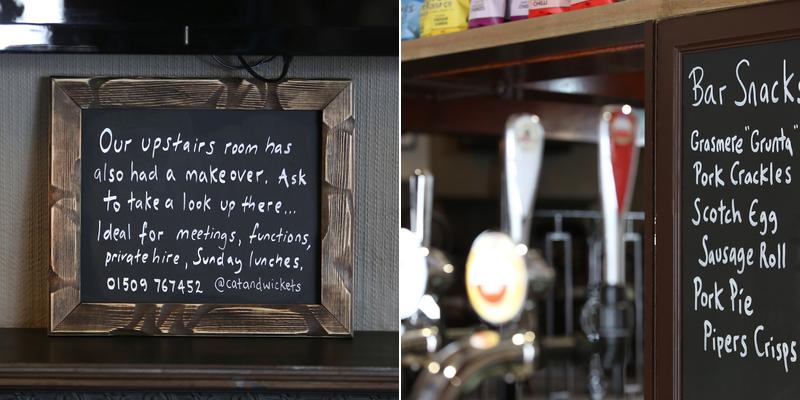 Our upstairs room has
also had a makeover. Ask
to take a look up there...
Ideal for meetings, functions,
private hire, Sunday lunches.
01509 767452 @catandwickets
Bar Snacks
Grasmere "Grunta"
Pork Crackles
Scotch Egg
Sausage Roll
Pork Pie
Pipers Crisps